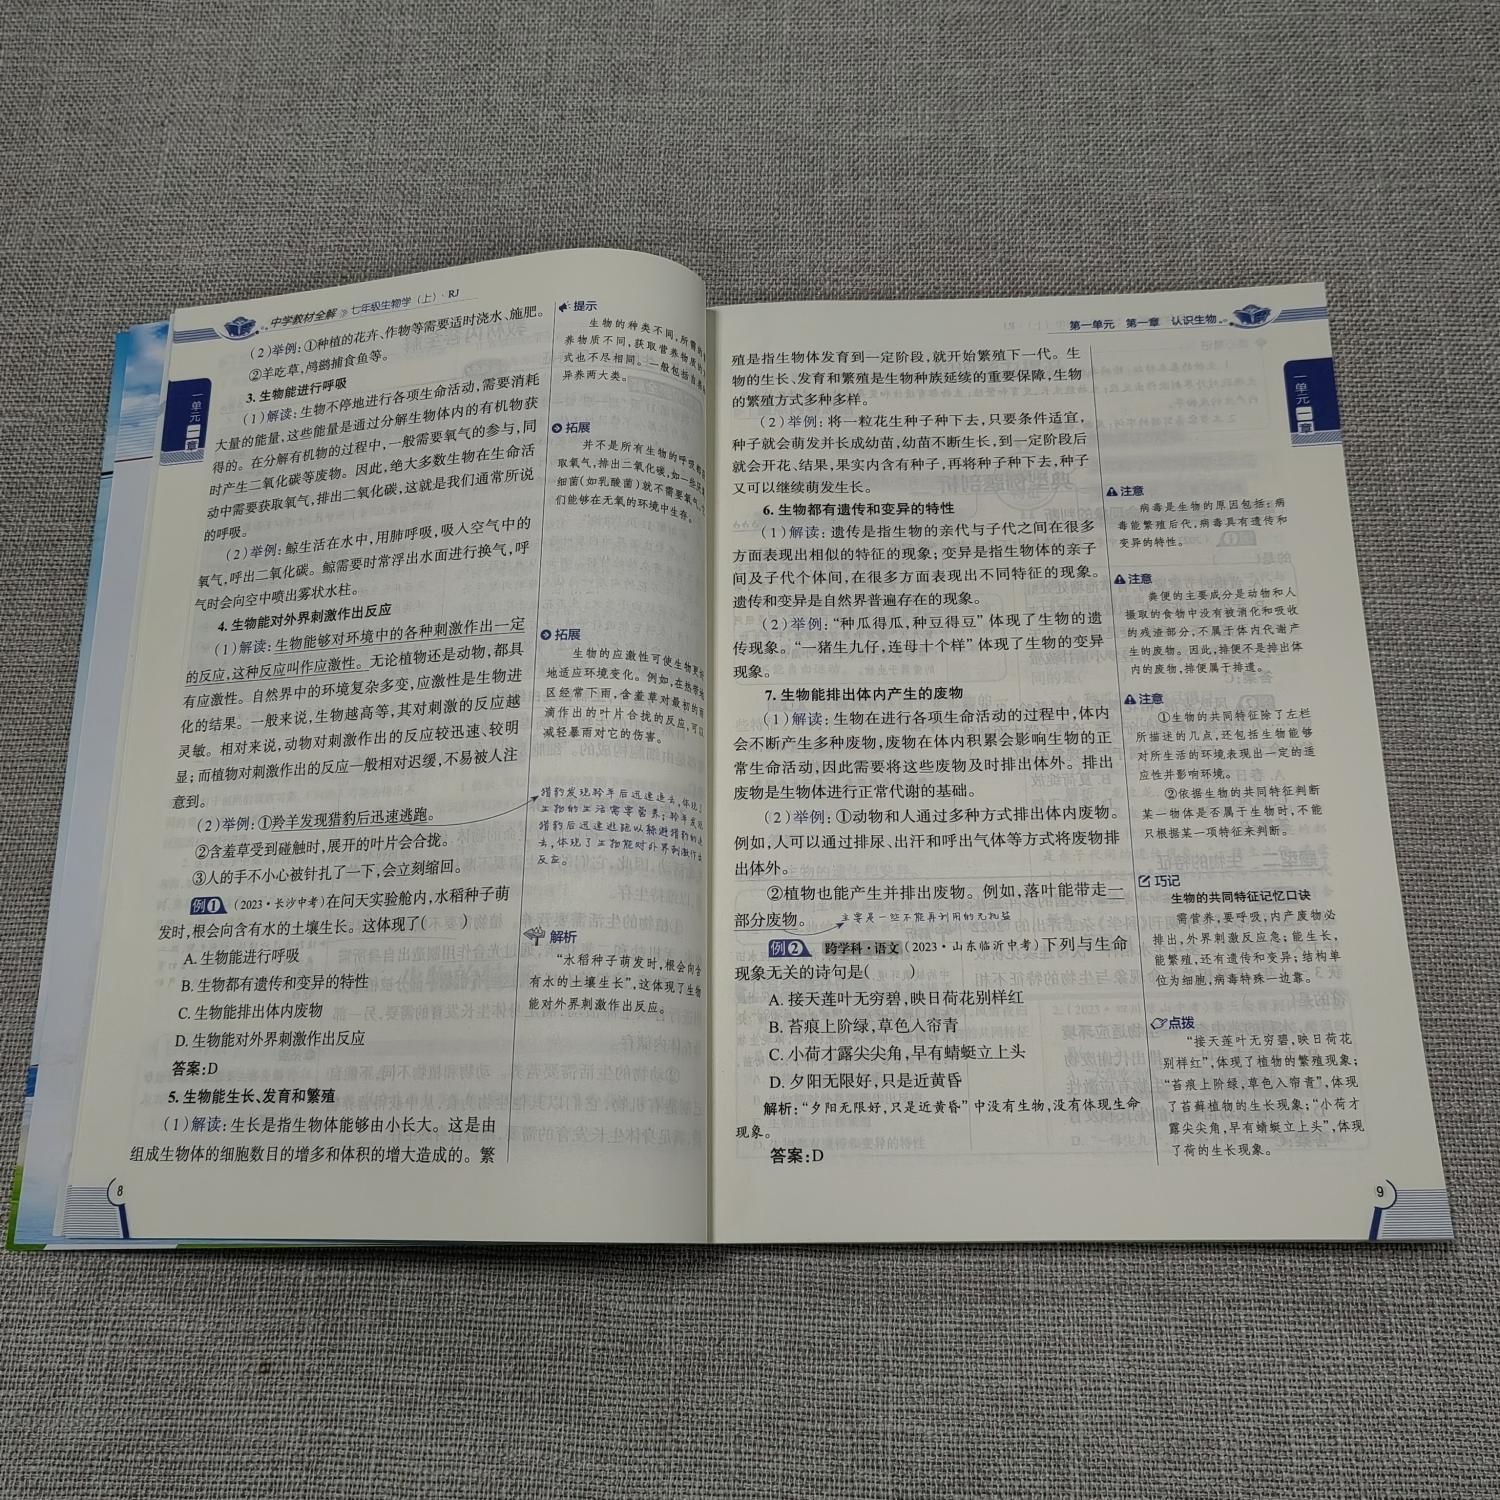 中学教材全解 七年级生物学（上）·RJ
一单元 一章
（2）举例：①种植的花卉、作物等需要适时浇水、施肥。
②羊吃草，鸬鹚捕食鱼等。
3. 生物能进行呼吸
（1）解读：生物不停地进行各项生命活动，需要消耗
大量的能量，这些能量是通过分解生物体内的有机物获
得的。在分解有机物的过程中，一般需要氧气的参与，同
时产生二氧化碳等废物。因此，绝大多数生物在生命活
动中需要获取氧气，排出二氧化碳，这就是我们通常所说
的呼吸。
（2）举例：鲸生活在水中，用肺呼吸，吸入空气中的
氧气，呼出二氧化碳。鲸需要时常浮出水面进行换气，呼
气时会向空中喷出雾状水柱。
4. 生物能对外界刺激作出反应
（1）解读：生物能够对环境中的各种刺激作出一定
的反应，这种反应叫作应激性。无论植物还是动物，都具
有应激性。自然界中的环境复杂多变，应激性是生物进
化的结果。一般来说，生物越高等，其对刺激的反应越
灵敏。相对来说，动物对刺激作出的反应较迅速、较明
显；而植物对刺激作出的反应一般相对迟缓，不易被人注
意到。
（2）举例：①羚羊发现猎豹后迅速逃跑。
②含羞草受到碰触时，展开的叶片会合拢。
③人的手不小心被针扎了一下，会立刻缩回。
例1（2023·长沙中考）在问天实验舱内，水稻种子萌
发时，根会向含有水的土壤生长。这体现了（　　）
A. 生物能进行呼吸
B. 生物都有遗传和变异的特性
C. 生物能排出体内废物
D. 生物能对外界刺激作出反应
答案：D
5. 生物能生长、发育和繁殖
（1）解读：生长是指生物体能够由小长大。这是由
组成生物体的细胞数目的增多和体积的增大造成的。繁
8
提示
生物的种类不同，所需的
养物质不同，获取营养物质的
式也不尽相同。一般包括自养
异养两大类。
拓展
并不是所有生物的呼吸都
取氧气，排出二氧化碳，如一些
细菌（如乳酸菌）就不需要氧气，
们能够在无氧的环境中生存。
拓展
生物的应激性可使生物更好
地适应环境变化。例如，在热带地
区经常下雨，含羞草对最初的雨
滴作出的叶片合拢的反应，可以
减轻暴雨对它的伤害。
猎豹发现羚羊后迅速追去，体现了
生物的生活需要营养；羚羊发现
猎豹后迅速逃跑以躲避猎豹的追
去，体现了生物能对外界刺激作出
反应。
解析
“水稻种子萌发时，根会向含
有水的土壤生长”，这体现了生物
能对外界刺激作出反应。
第一单元　第一章　认识生物
一单元 一章
殖是指生物体发育到一定阶段，就开始繁殖下一代。生
物的生长、发育和繁殖是生物种族延续的重要保障，生物
的繁殖方式多种多样。
（2）举例：将一粒花生种子种下去，只要条件适宜，
种子就会萌发并长成幼苗，幼苗不断生长，到一定阶段后
就会开花、结果，果实内含有种子，再将种子种下去，种子
又可以继续萌发生长。
6. 生物都有遗传和变异的特性
（1）解读：遗传是指生物的亲代与子代之间在很多
方面表现出相似的特征的现象；变异是指生物体的亲子
间及子代个体间，在很多方面表现出不同特征的现象。
遗传和变异是自然界普遍存在的现象。
（2）举例：“种瓜得瓜，种豆得豆”体现了生物的遗
传现象。“一猪生九仔，连母十个样”体现了生物的变异
现象。
7. 生物能排出体内产生的废物
（1）解读：生物在进行各项生命活动的过程中，体内
会不断产生多种废物，废物在体内积累会影响生物的正
常生命活动，因此需要将这些废物及时排出体外。排出
废物是生物体进行正常代谢的基础。
（2）举例：①动物和人通过多种方式排出体内废物。
例如，人可以通过排尿、出汗和呼出气体等方式将废物排
出体外。
②植物也能产生并排出废物。例如，落叶能带走一
部分废物。
主要是一些不能再利用的无机盐
例2 跨学科·语文（2023·山东临沂中考）下列与生命
现象无关的诗句是（　　）
A. 接天莲叶无穷碧，映日荷花别样红
B. 苔痕上阶绿，草色入帘青
C. 小荷才露尖尖角，早有蜻蜓立上头
D. 夕阳无限好，只是近黄昏
解析：“夕阳无限好，只是近黄昏”中没有生物，没有体现生命
现象。
答案：D
注意
病毒是生物的原因包括：病
毒能繁殖后代，病毒具有遗传和
变异的特性。
注意
粪便的主要成分是动物和人
摄取的食物中没有被消化和吸收
的残渣部分，不属于体内代谢产
生的废物。因此，排便不是排出体
内的废物，排便属于排遗。
注意
①生物的共同特征除了左栏
所描述的几点，还包括生物能够
对所生活的环境表现出一定的适
应性并影响环境。
②依据生物的共同特征判断
某一物体是否属于生物时，不能
只根据某一项特征来判断。
巧记
生物的共同特征记忆口诀
需营养，要呼吸，内产废物必
排出，外界刺激反应急；能生长，
能繁殖，还有遗传和变异；结构单
位为细胞，病毒特殊一边靠。
点拨
“接天莲叶无穷碧，映日荷花
别样红”，体现了植物的繁殖现象；
“苔痕上阶绿，草色入帘青”，体现
了苔藓植物的生长现象；“小荷才
露尖尖角，早有蜻蜓立上头”，体现
了荷的生长现象。
9